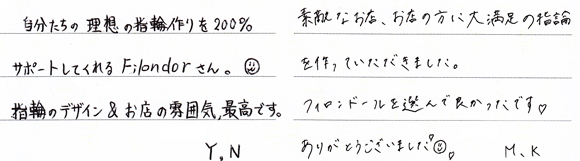 自分たちの理想の指輪作りを200%
サポートしてくれるFilondorさん。☺
指輪のデザイン&お店の雰囲気、最高です。
Y,N
素敵なお店、お店の方に大満足の指論
を作っていただきました。
フィロンドールを選んで良かったです♡
ありがとうございました☺。
M、K